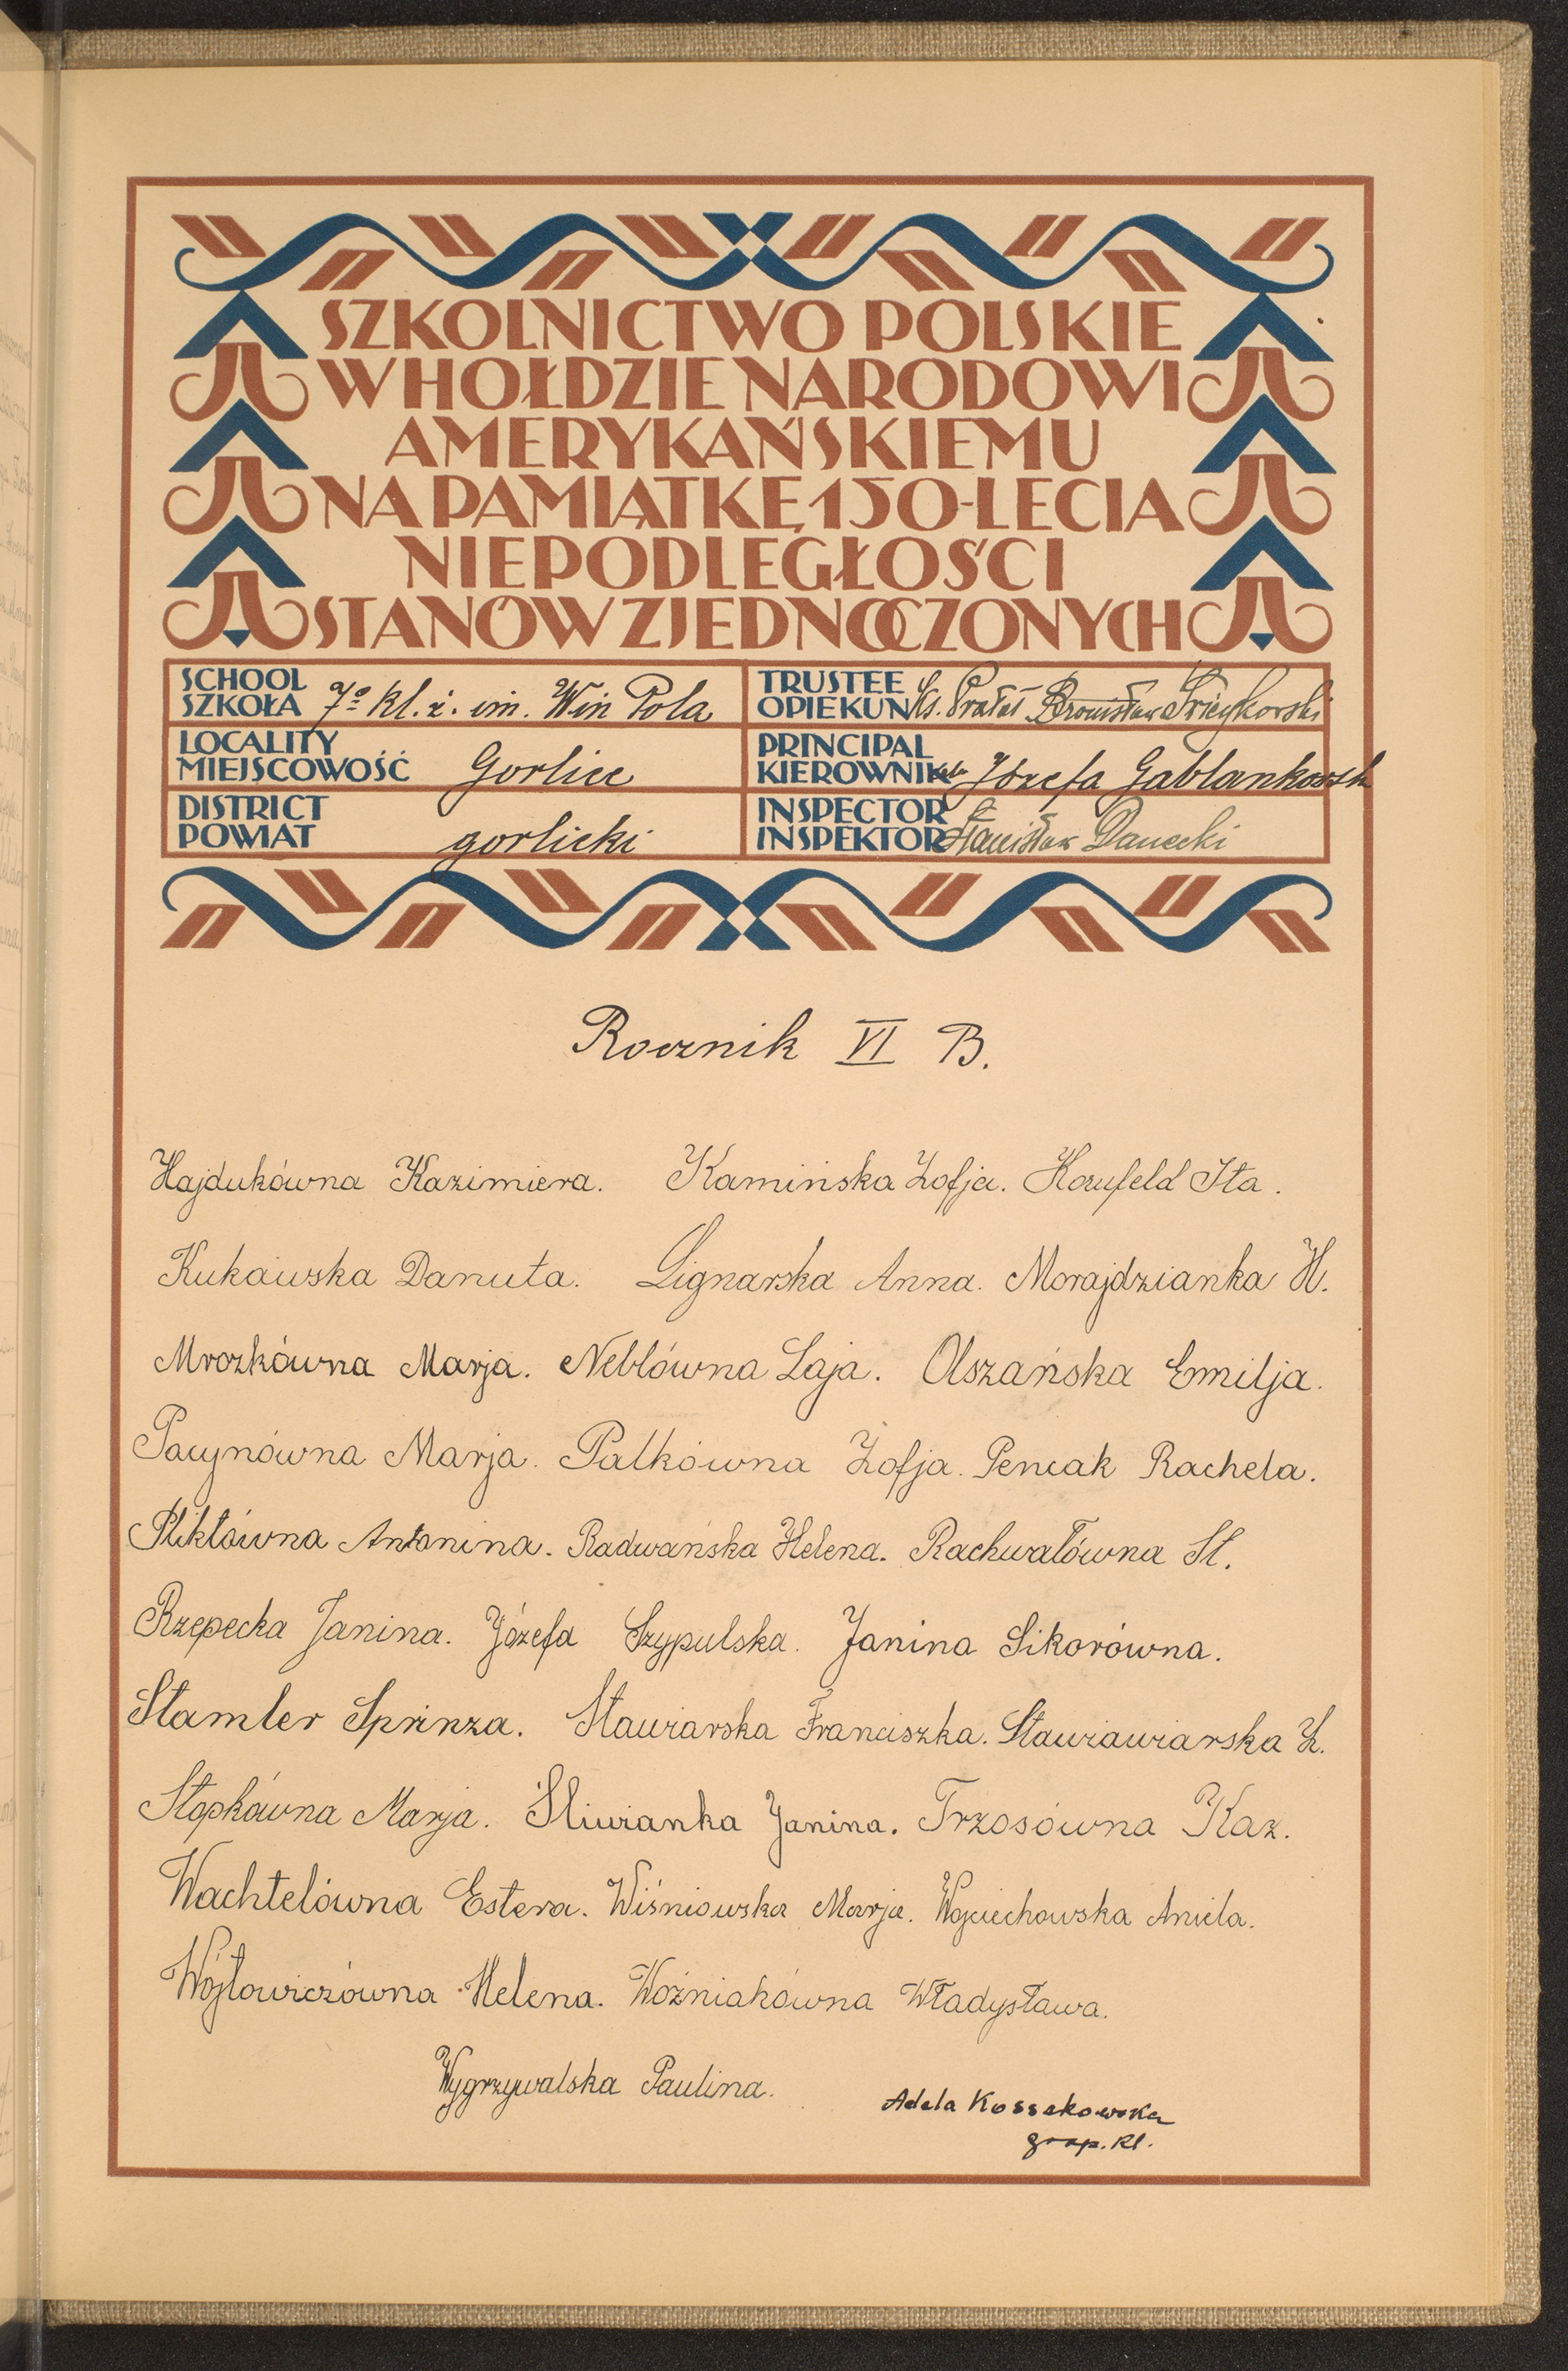 SZKOLNICTWO POLSKIE
W HOŁDZIE NARODOWI
AMERYKAŃSKIEMU
NA PAMIĄTKĘ 150-LECIA
NIEPODLEGŁOŚCI
STANÓW ZJEDNOCZONYCH
SCHOOL
SZKOŁA 7º kl. ż. im. Win Pola
TRUSTEE
OPIEKUN Ks. Prałat Bronisław
LOCALITY
MIEJSCOWOŚĆ Gorlice
PRINCIPAL
KIEROWNIK Józefa Gablankowsk
DISTRICT
POWIAT gorlicki
INSPECTOR
INSPEKTOR Stanisław Danecki
Rocznik VI B.
Hajdukówna Kazimiera. Kamińska Zofja. Kornfeld Ita.
Kukawska Danuta. Lignarska Anna. Morajdzianka H.
Mrozkówna Marja. Neblówna Laja. Olszańska Emilja.
Pacynówna Marja. Palkówna Zofja. Pencak Rachela.
Pliktówna Antonina. Radwańska Helena. Rachwałówna St.
Rzepecka Janina. Józefa Szypulska. Janina Sikorówna.
Stamler Sprinza. Stawiarska Franciszka. Stawiawiarska Z.
Stopkówna Marja. Śliwianka Janina. Trzosówna Kaz.
Wachtelówna Estera. Wiśniowska Marja. Wojciechowska Aniela.
Wójtowiczówna Helena. Woźniakówna Władysława.
Wygrzywalska Paulina.
Adela Kossakowska
gosp. kl.